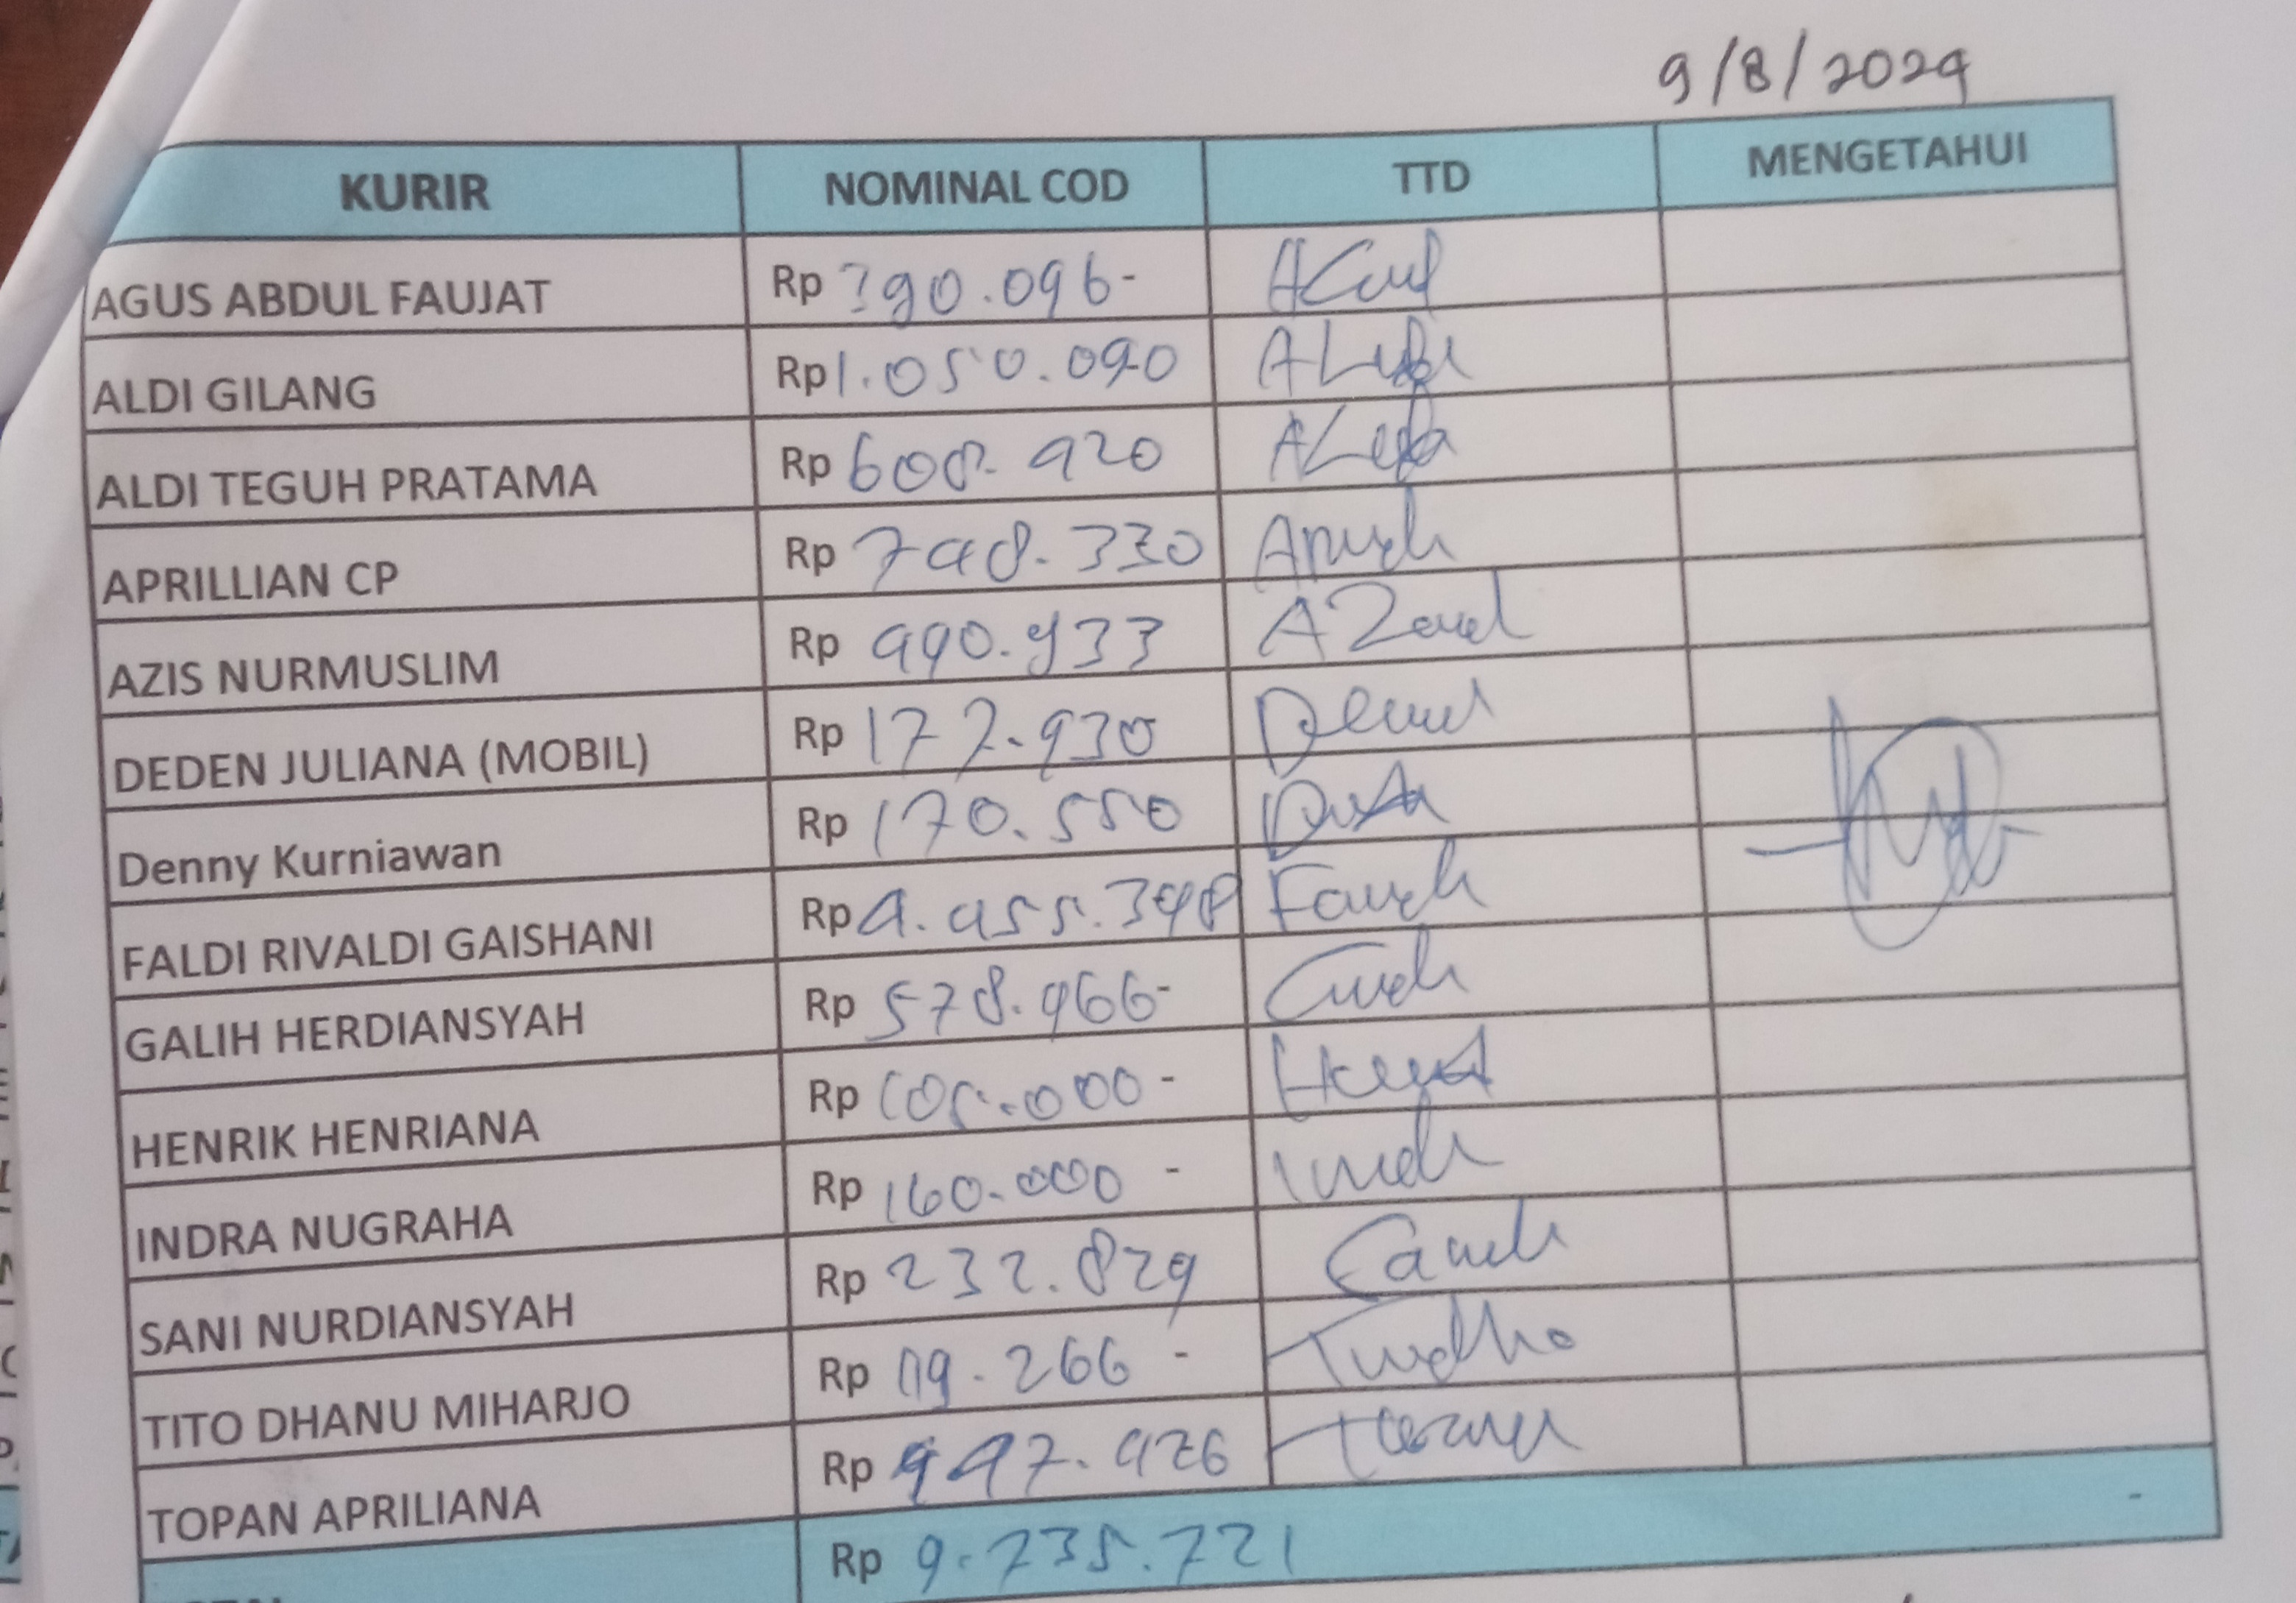 9/8/2024
KURIR NOMINAL COD TTD MENGETAHUI
AGUS ABDUL FAUJAT Rp 390.096-
ALDI GILANG Rp 1.050.090
ALDI TEGUH PRATAMA Rp 608.420
APRILLIAN CP Rp 748.330
AZIS NURMUSLIM Rp 490.933
DEDEN JULIANA (MOBIL) Rp 177.930
Denny Kurniawan Rp 170.550
FALDI RIVALDI GAISHANI Rp 4.455.348
GALIH HERDIANSYAH Rp 578.966-
HENRIK HENRIANA Rp 105.000 -
INDRA NUGRAHA Rp 160.000 -
SANI NURDIANSYAH Rp 232.829
TITO DHANU MIHARJO Rp 119.266 -
TOPAN APRILIANA Rp 447.426
Rp 9.735.721 -